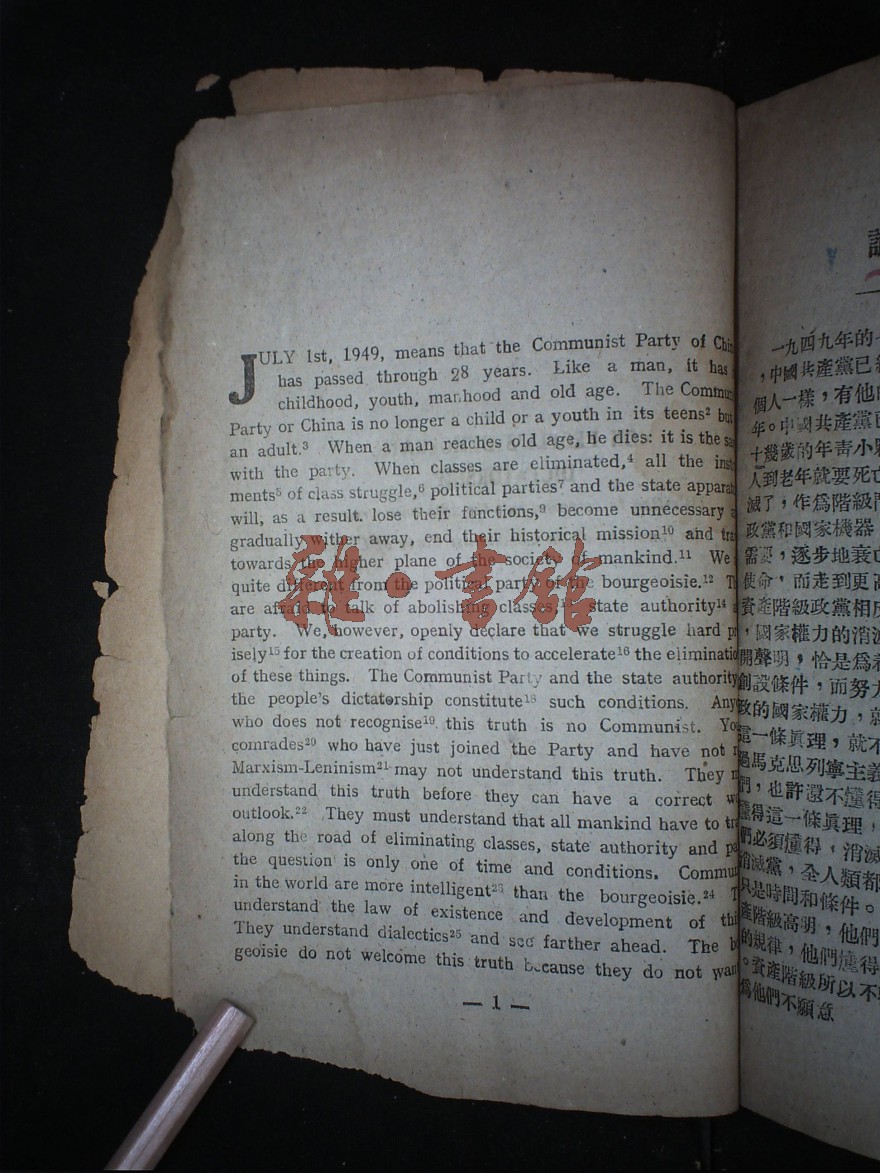 JULY 1st, 1949, means that the Communist Party of
has passed through 28 years. Like a man, it has
childhood, youth, manhood and old age. The
Party or China is no longer a child or a youth in its teens² but
an adult.³ When a man reaches old age, he dies: it is the
with the party. When classes are eliminated,⁴ all the
ments⁵ of class struggle,⁶ political parties⁷ and the state
will, as a result. lose their functions,⁹ become unnecessary
gradually wither away, end their historical mission¹⁰ and
towards the higher plane of the society of mankind.¹¹ We
quite different from the political party of the bourgeoisie.¹²
are afraid to talk of abolishing classes,¹³ state authority¹⁴
party. We, however, openly declare that we struggle hard
isely¹⁵ for the creation of conditions to accelerate¹⁶ the
of these things. The Communist Party and the state authority
the people's dictatorship constitute¹⁸ such conditions.
who does not recognise¹⁹ this truth is no Communist.
comrades²⁰ who have just joined the Party and have not
Marxism-Leninism²¹ may not understand this truth. They
understand this truth before they can have a correct
outlook.²² They must understand that all mankind have to
along the road of eliminating classes, state authority and
the question is only one of time and conditions.
in the world are more intelligent²³ than the bourgeoisie.²⁴
understand the law of existence and development of
They understand dialectics²⁵ and see farther ahead. The
geoisie do not welcome this truth because they do not
— 1 —
一九四九年的
，中國共產黨已
個人一樣，有他
年。中國共產黨已
十幾歲的年青小
人到老年就要死亡
滅了，作爲階級
政黨和國家機器
需要，逐步地衰亡
使命，而走到更高
資產階級政黨相反
，國家權力的消滅
開聲明，恰是爲着
創設條件，而努力
政的國家權力，就
這一條眞理，就不
過馬克思列寧主義
們，也許還不懂得
懂得這一條眞理，
們必須懂得，消滅
消滅黨，全人類都
只是時間和條件。
產階級高明，他們
的規律，他們懂得
。資產階級所以不
爲他們不願意
雜·書館